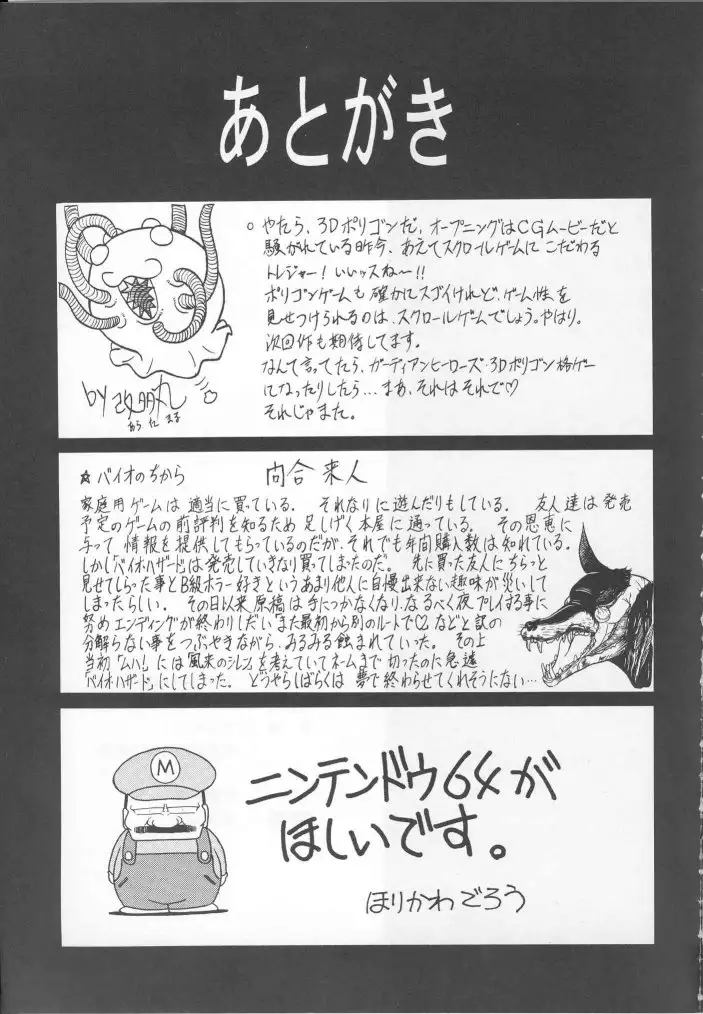 あとがき
○ やたら、3Dポリゴンだ、オープニングはCGムービーだと
騒がれている昨今、あえてスクロールゲームに こだわる
トレジャー! いいッスね〜!!
ポリゴンゲームも 確かにスゴイけれど、ゲーム性を
見せつけられるのは、スクロールゲームでしょう。やはり。
次回作も期待してます。
なんて言ってたら、ガーディアンヒーローズ・3Dポリゴン格ゲー
になったりしたら…まあ、それはそれで♡
それじゃまた。
by
あらた まる
☆ バイオのちから 向合 来人
家庭用ゲームは 適当に買っている。 それなりに遊んだりもしている。 友人達は発売
予定のゲームの前評判を知るため 足しげく本屋に通っている。 その恩恵に
与って 情報を提供してもらっているのだが、それでも年間購入数は知れている。
しかし「バイオハザード」は発売していきなり買ってしまったのだ。 先に買った友人にちらっと
見せてしらった事とB級ホラー好きというあまり他人に自慢出来ない趣味が災いして
しまったらしい。 その日以来 原稿は手につかなくなり、なるべく夜プレイする事に
努めエンディングが終わりしだい「また最初から別のルートで…」などと訳の
分解らない事をつぶやきながら、みるみる蝕まれていった。 その上
当初「ムハ!」には「風来のシレン」を考えていてネームまで切ったのに急遽
「バイオハザード」にしてしまった。 どうやらしばらくは 夢で終わらせてくれそうにない…
M
ニンテンドウ64が
ほしいです。
ほりかわごろう